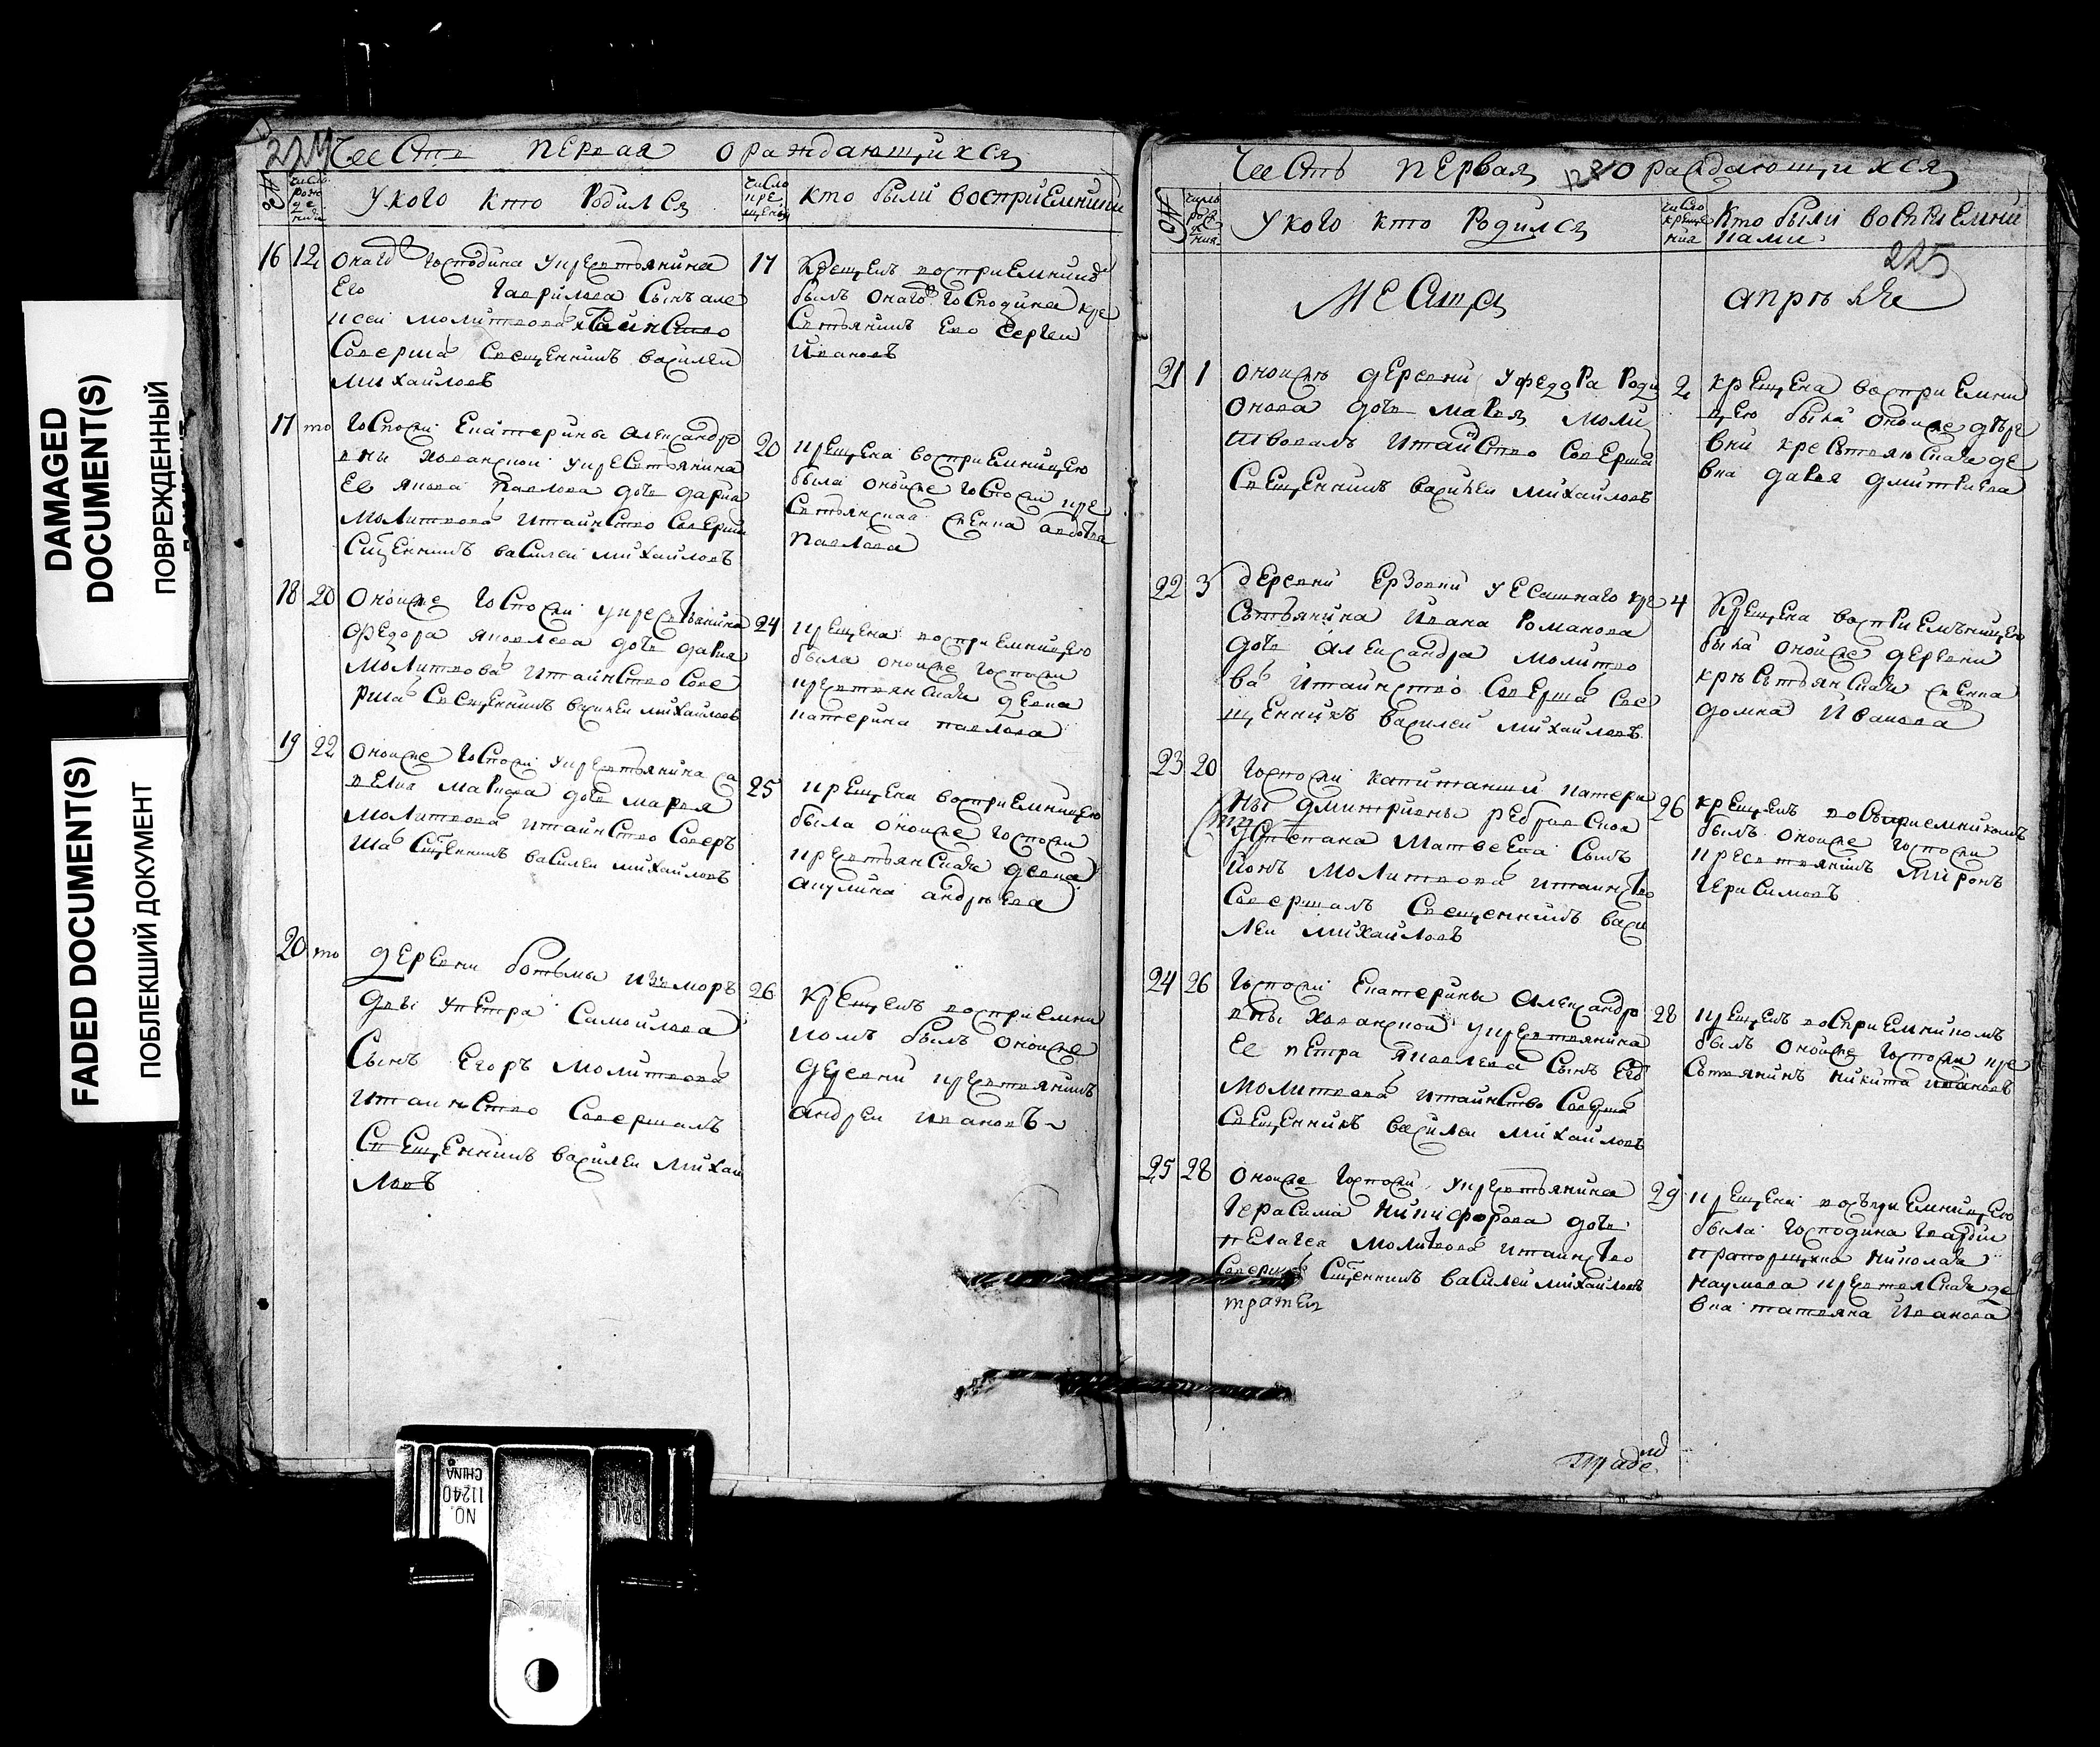 DAMAGED
DOCUMENT(S)
ПОВРЕЖДЕННЫЙ
FADED DOCUMENT(S)
ПОБЛЕКШИЙ ДОКУМЕНТ
Часть первая о раждающихся
№
число рождения
У кого кто родился
число крещения
кто были восприемники
16 12
онаго господина укрестьянина
его Гаврилова сынъ але
ксей молитвова и таинство
соверша священникъ василей
михайловъ
17
крещенъ восприемникъ
былъ онаго господина кре
стьянинъ его Сергеи
Ивановъ
17 то
госпожи Екатерины александро
вны Хованской укрестьянина
ее якова павлова дочь дарья
молитвова итаинство соверши
сщенникъ василей михайловъ
20
крещена восприемницею
была оной же госпожи кре
стьянская женка авдотья
павлова
18 20
оной же госпожи укрестьянина
Федора яковлева дочь дарья
молитвова итаинство сове
рша священникъ василеи михайловъ
24
крещена восприемницею
была оной же госпожи
крестьянская девка
катерина павлова
19 22
оной же госпожи укрестьянина са
велия маркова дочь марья
молитвова итаинство совер
ша сщенникъ василеи михайловъ
25
крещена восприемницею
была оной же госпожи
крестьянская девка
акулина андреева
20 то
деревни ботьмы изъ морь
двы упетра Самойлова
сынъ Егоръ молитвова
итаинство совершалъ
священникъ василеи михаи
ловъ
26
крещенъ восприемни
комъ былъ оной же
деревни крестьянинъ
андреи ивановъ
Часть первая о раждающихся
№
число рождения
У кого кто родился
число крещения
Кто были восприемни
ками
225
Месяца апреля
21 1
оной же деревни уфедора роди
онова дочь марья моли
твовалъ итаинство соверша
священникъ василеи михайловъ
2
крещена восприемни
цею была оной же дере
вни крестьянская де
вка дарья дмитриева
22 3
деревни Ерзовки уесашнаго кре
стьянина Ивана Романова
дочь александра молитво
ва итаинство соверша свя
щенникъ василей михайловъ
4
крещена восприемницею
была оной же деревни
крестьянская женка
домна Иванова
23 20
госпожи капитанши катери
ны дмитриевны ребровской
устепана матвеева сынъ
молитвова итаинство
совершалъ священникъ васи
лей михайловъ
26
крещенъ восприемникомъ
былъ оной же госпожи
крестьянинъ миронъ
герасимовъ
24 26
госпожи Екатерины александро
вны хованской укрестьянина
ее петра яковлева сынъ
молитвова итаинство соверша
священникъ василеи михайловъ
28
крещенъ восприемникомъ
былъ оной же госпожи кре
стьянинъ никита ивановъ
25 28
оной же госпожи укрестьянина
герасима никифорова дочь
пелагея молитвова итаинство
соверша сщенникъ василей михайловъ
29
крещена восприемницею
была господина гвардии
прапорщика николая
наумова крестьянская де
вка татьяна Иванова
NO.
11240
CHINA